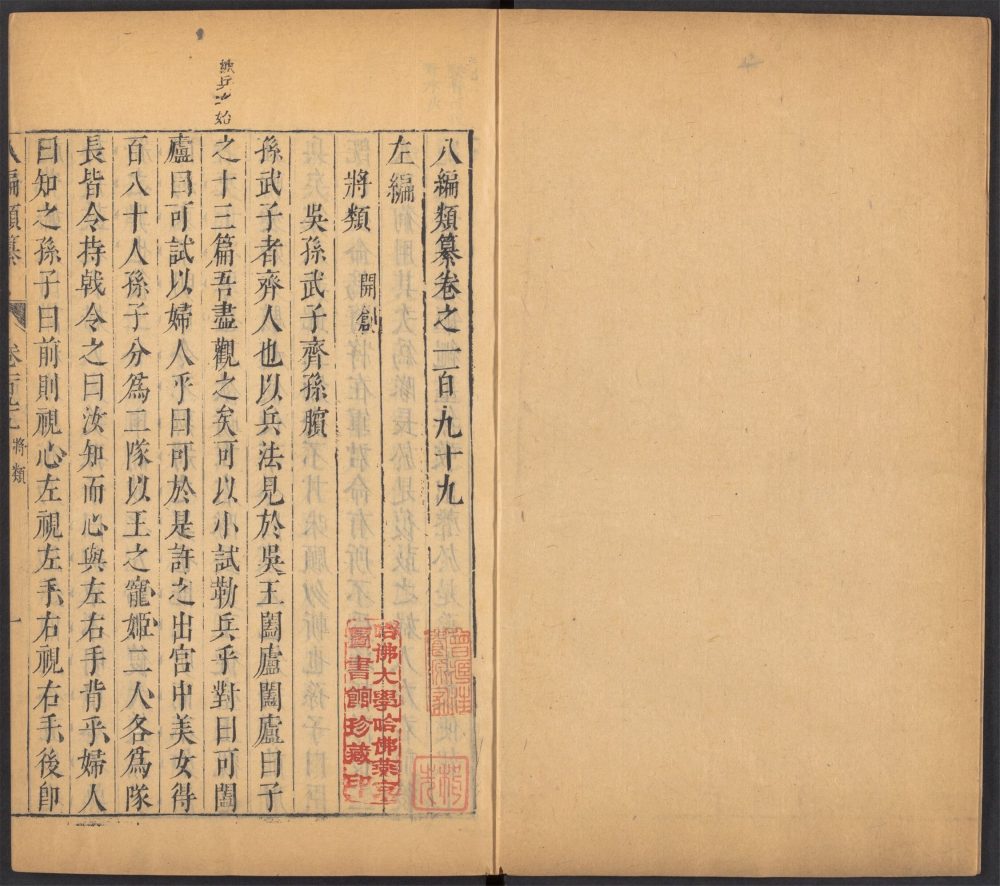 八編類纂卷之二百九十九
左編
將類 開創
吳孫武子齊孫臏
孫武子者齊人也以兵法見於吳王闔廬闔廬曰子
之十三篇吾盡觀之矣可以小試勒兵乎對曰可闔
廬曰可試以婦人乎曰可於是許之出宮中美女得
百八十人孫子分爲二隊以王之寵姬二人各爲隊
長皆令持戟令之曰汝知而心與左右手背乎婦人
曰知之孫子曰前則視心左視左手右視右手後卽
八編類纂
將類
一
哈佛大學哈佛燕京
圖書館珍藏印